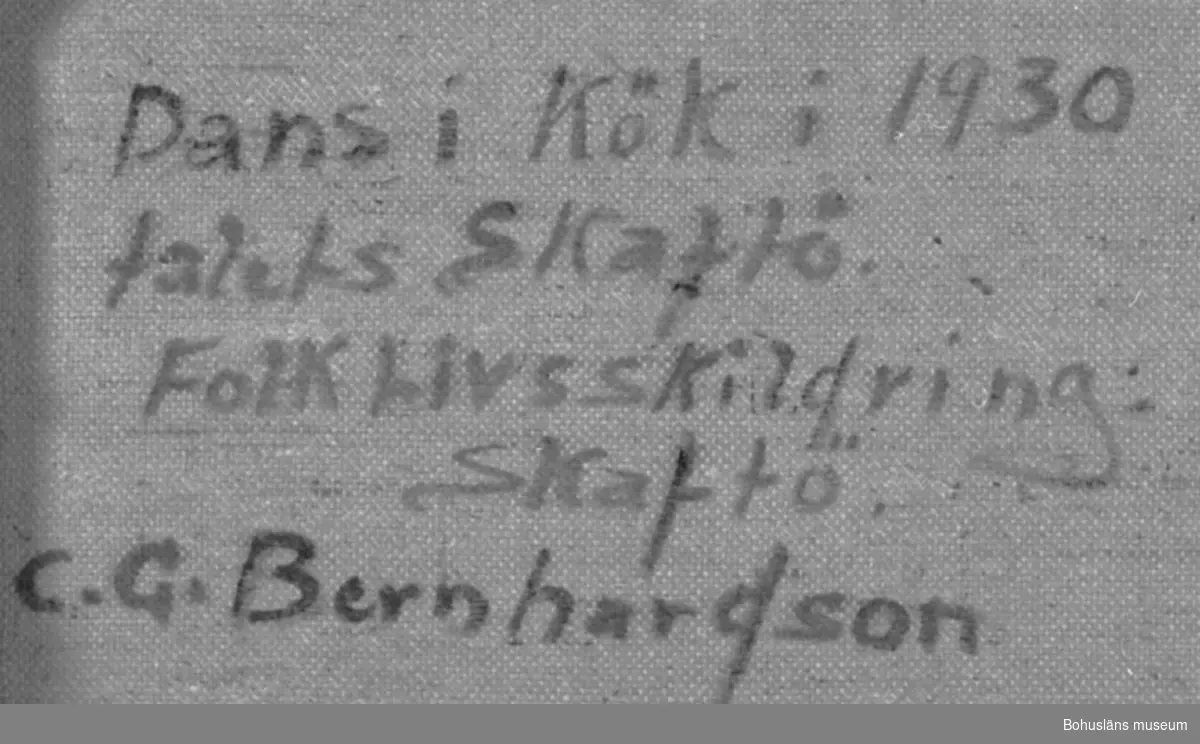 Dans i Kök i 1930
talets Skaftö.
Folklivsskildring:
Skaftö.
C.G. Bernhardson
Bohusläns museum